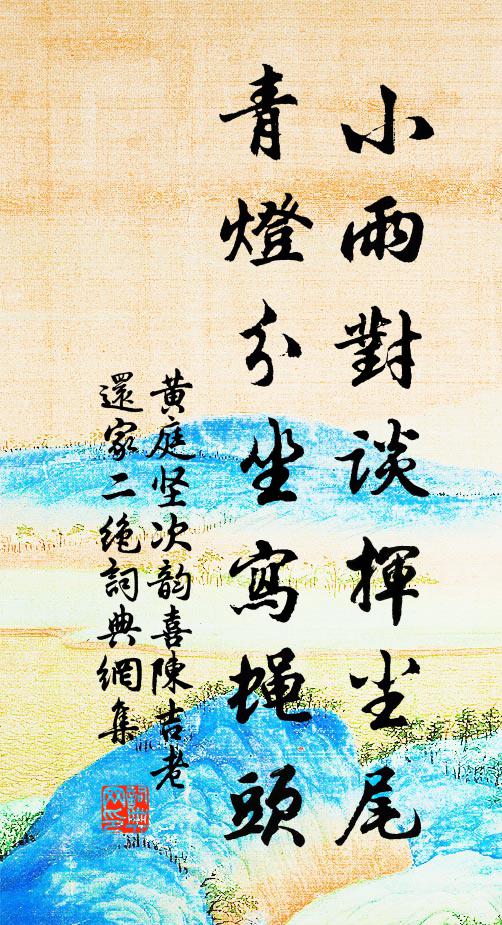 小雨對談揮尘尾
青燈分坐寫蝇頭
黄庭坚次韵喜陳吉老
還家二绝詞典網集